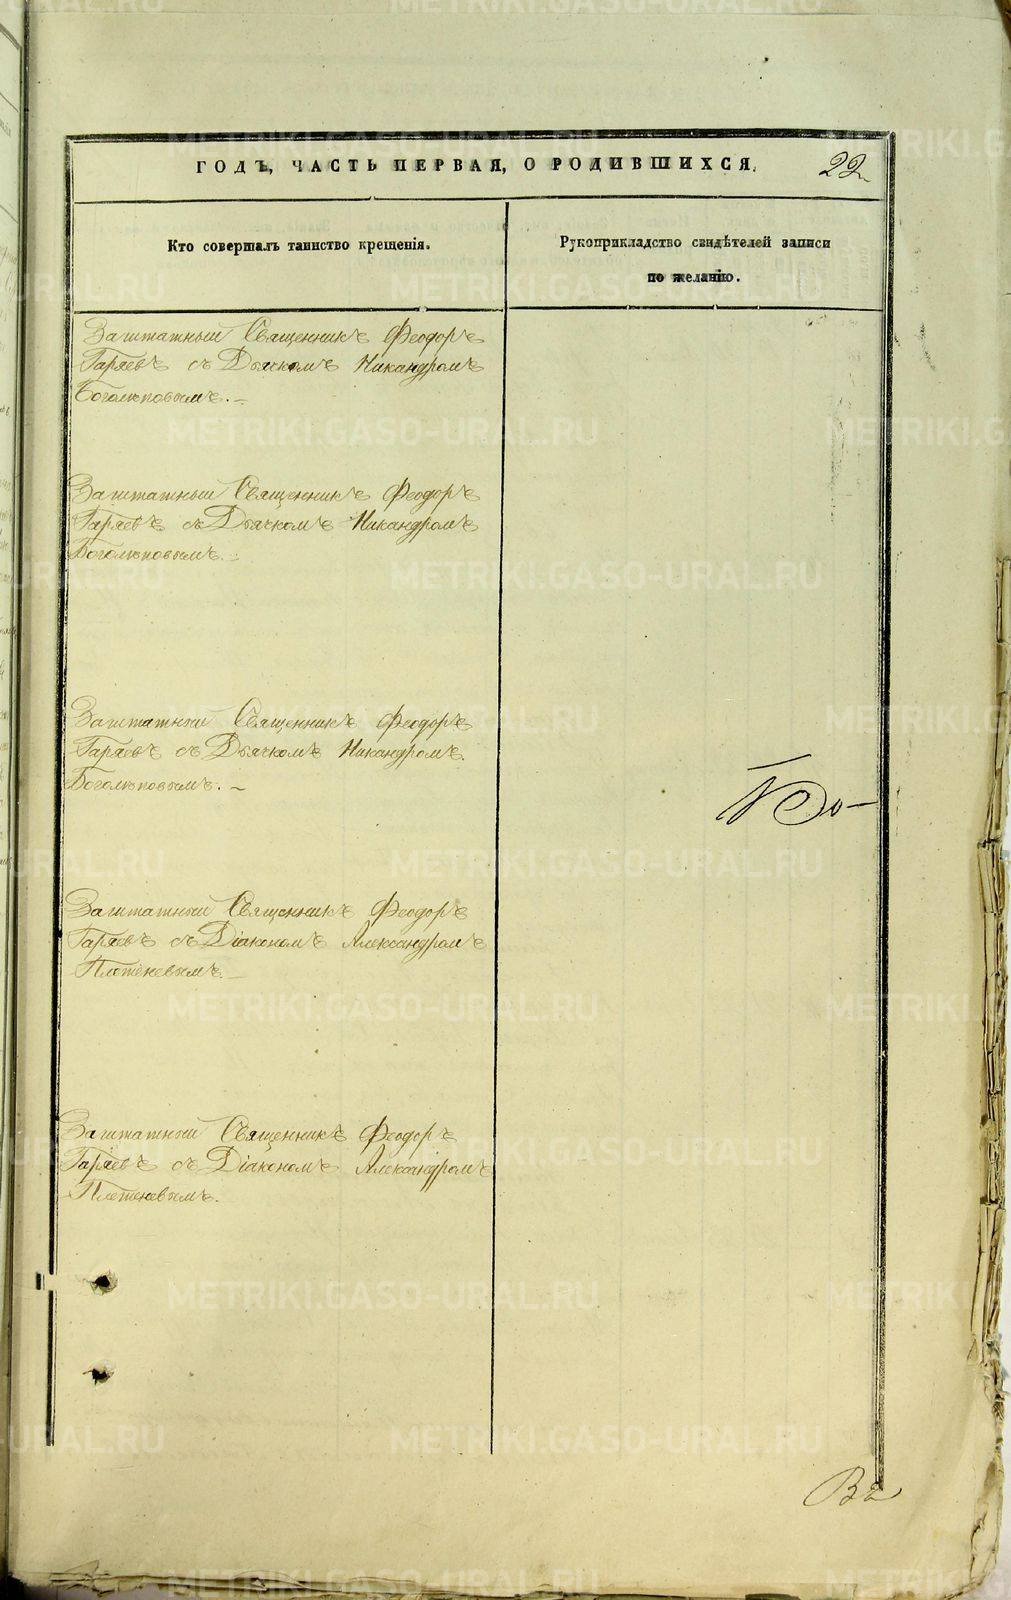 ГОДЪ, ЧАСТЬ ПЕРВАЯ, О РОДИВШИХСЯ.
22
Кто совершалъ таинство крещенія.
Рукоприкладство свидѣтелей записи
по желанію.
Заштатный Священникъ Феодоръ
Гаряевъ съ Дьячкомъ Никандромъ
Боголѣповымъ.
Заштатный Священникъ Феодоръ
Гаряевъ съ Дьячкомъ Никандромъ
Боголѣповымъ.
Заштатный Священникъ Феодоръ
Гаряевъ съ Дьячкомъ Никандромъ
Боголѣповымъ.
Заштатный Священникъ Феодоръ
Гаряевъ съ Діакономъ Александромъ
Плотеневымъ.
Заштатный Священникъ Феодоръ
Гаряевъ съ Діакономъ Александромъ
Плотеневымъ.
METRIKI.GASO-URAL.RU